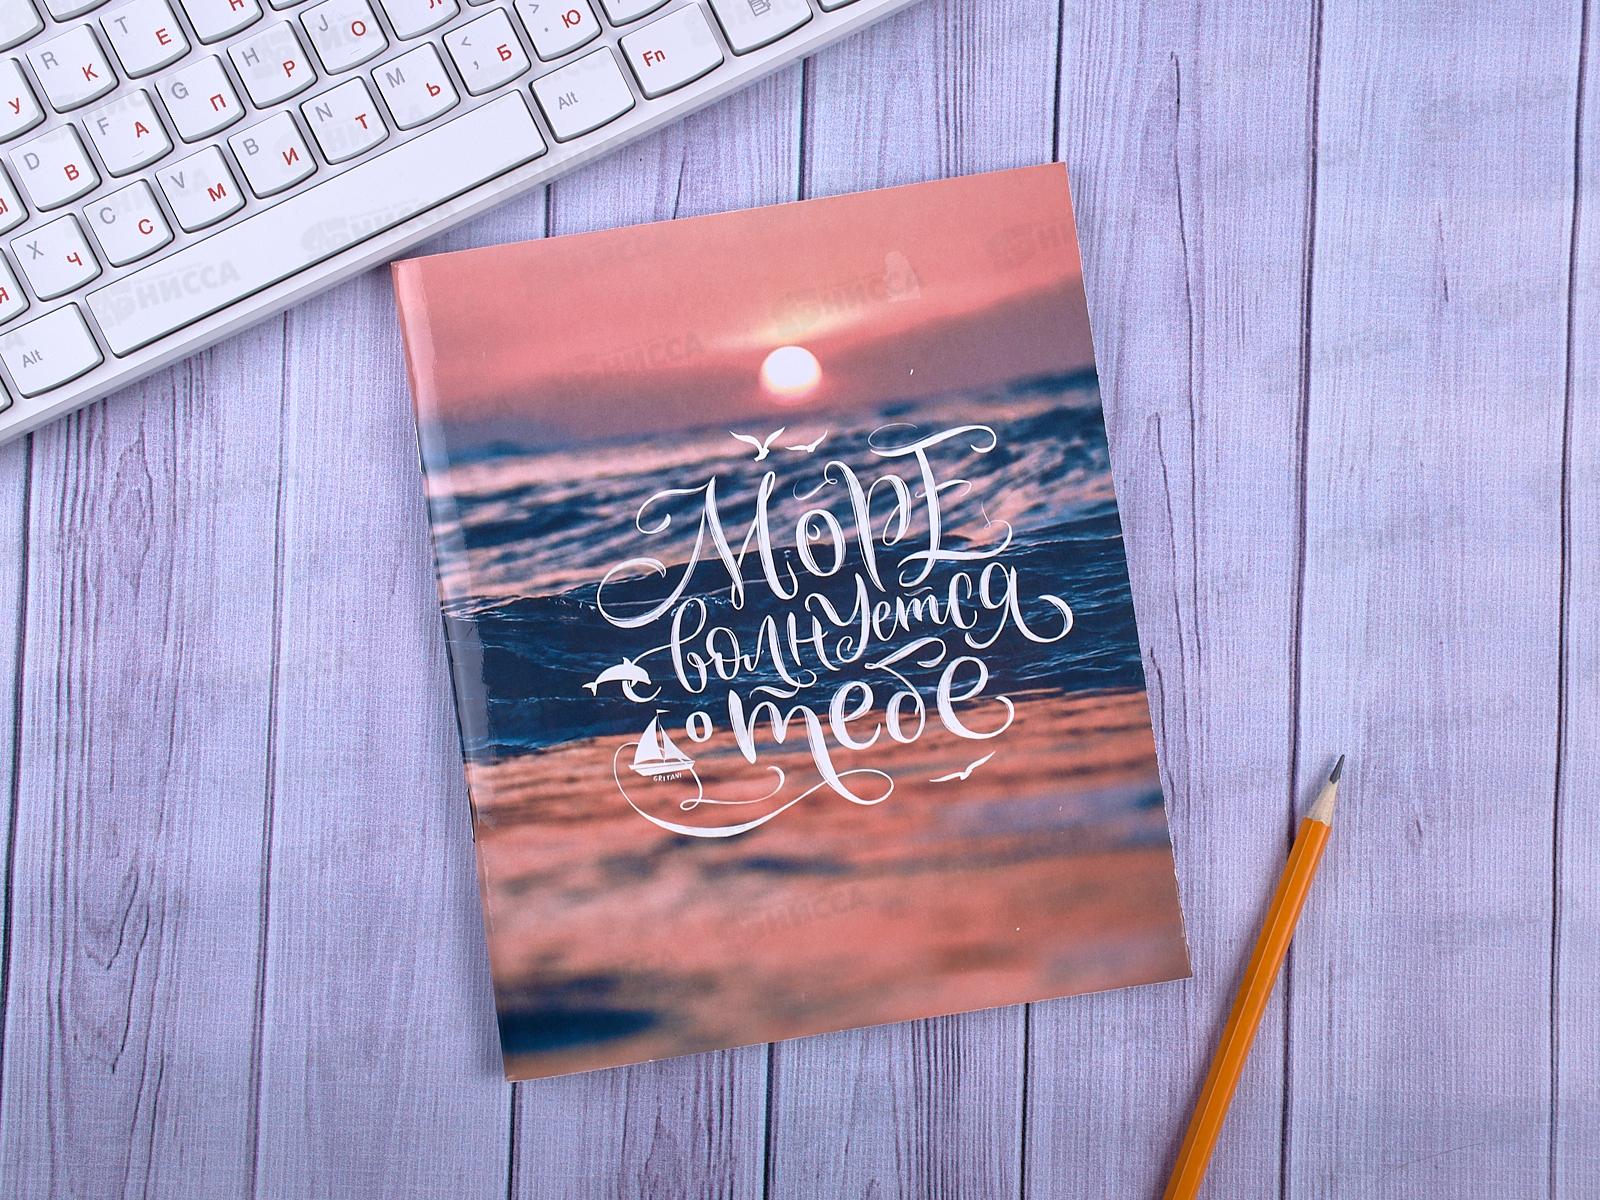 R К T Е Н J О
У F А G П H Р Л < , Б > . Ю
D В V М B И N Т M Ь Alt Fn
Ы X Ч C С
Я Alt
МОРЕ
волнуется
о тебе
GRITANI
НИССА